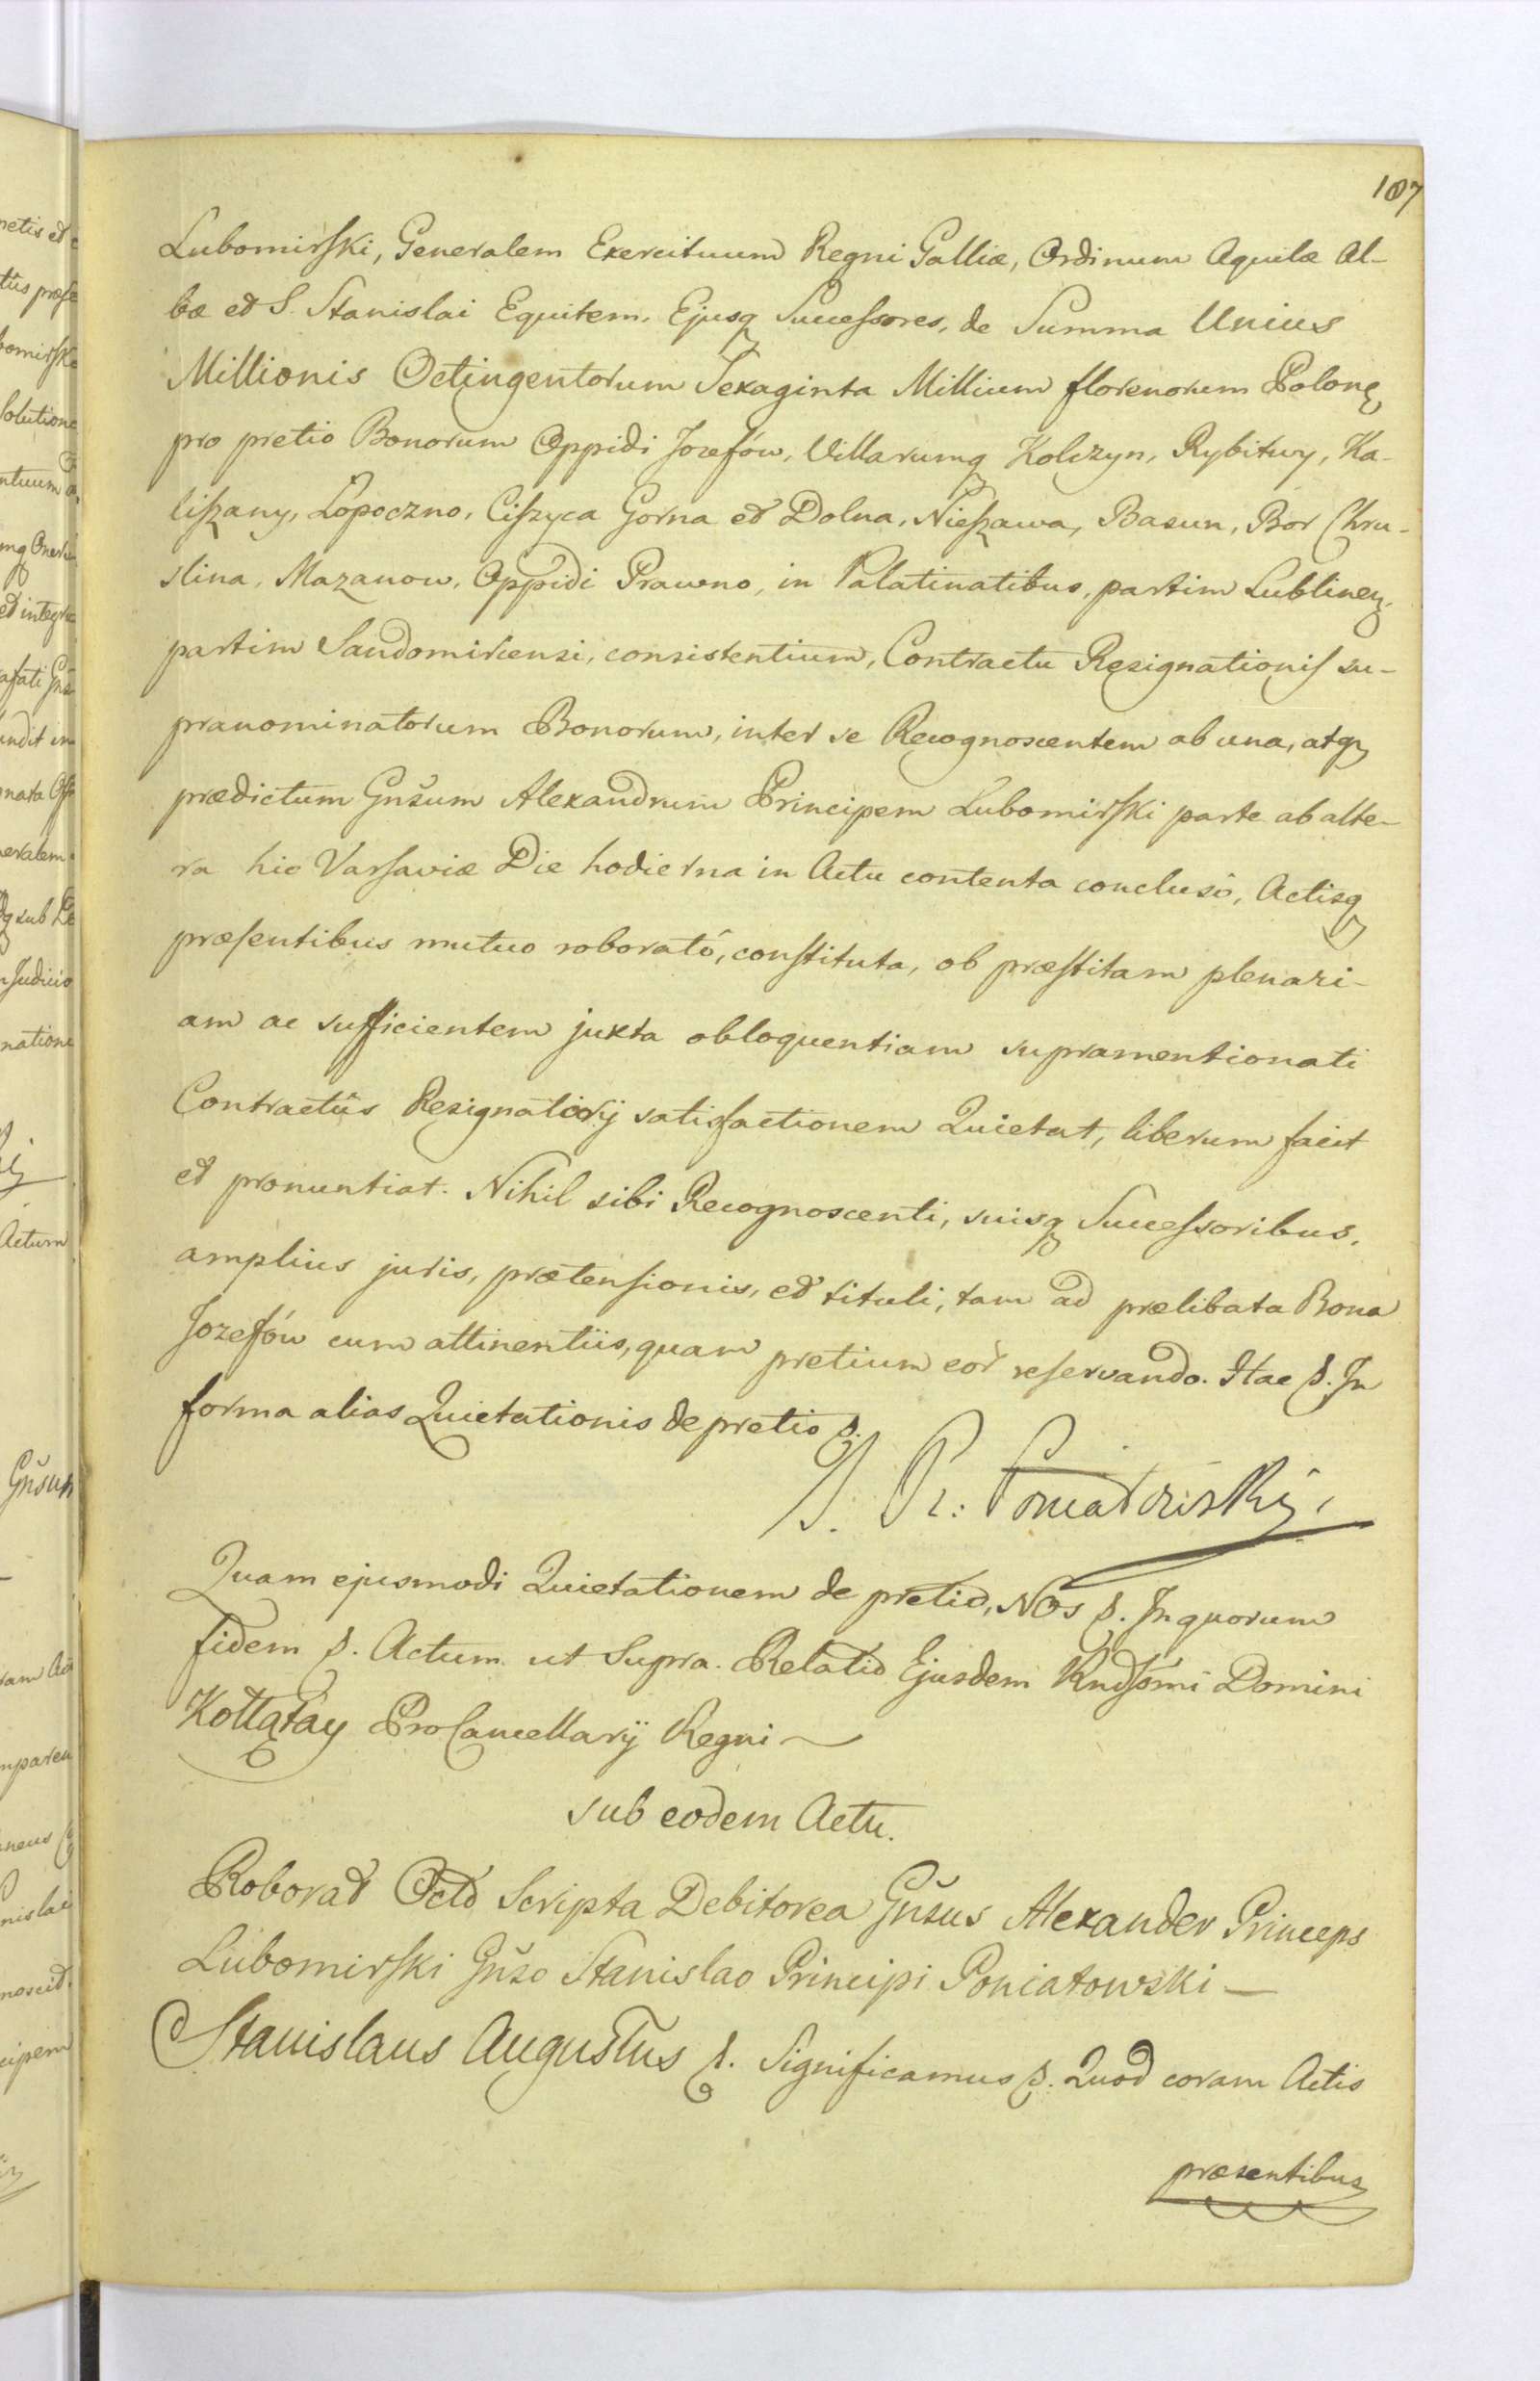 107
Lubomirski, Generalem Exercituum Regni Galliæ, Ordinum Aquilæ Al-
bæ et S. Stanislai Equitem, Ejusq Successores, de Summa Unius
Millionis Octingentorum Sexaginta Millium florenorum Polon,
pro pretio Bonorum Oppidi Jozefów, Villarumq Kolczyn, Rybitwy, Ka-
liszany, Lopoczno, Ciszyca Gorna et Dolna, Nieszawa, Basun, Bor Chru-
slina, Mazanow, Oppidi Prawno, in Palatinatibus, partim Lublinen,
partim Sandomiriensi, consistentium, Contractu Resignationis su-
pranominatorum Bonorum, inter se Recognoscentem ab una, atq
prædictum Gnsum Alexandrum Principem Lubomirski parte ab alte-
ra hic Varsaviæ Die hodierna in Actu contenta conclusô, Actisq
præsentibus mutuo roboratô, constituta, ob præstitam plenari-
am ac sufficientem juxta obloquentiam supramentionati
Contractûs Resignatorij satisfactionem Quietat, liberum facit
et pronuntiat. Nihil sibi Recognoscenti, suisq Successoribus,
amplius juris, prætensionis, et tituli, tam ad prælibata Bona
Jozefów cum attinentiis, quam pretium eor reservando. Hac p. In
forma alias Quietationis de pretio p.
S. Pr: Poniatowski,
Quam ejusmodi Quietationem de pretio, Nos p. In quorum
fidem p. Actum ut Supra. Relatio Ejusdem Rndssmi Domini
Kołłątay ProCancellarij Regni
sub eodem Actu.
Roborat Octo Scripta Debitorea Gnsus Alexander Princeps
Lubomirski Gnso Stanislao Principi Poniatowski —
Stanislaus Augustus p. Significamus p. Quod coram Actis
præsentibus